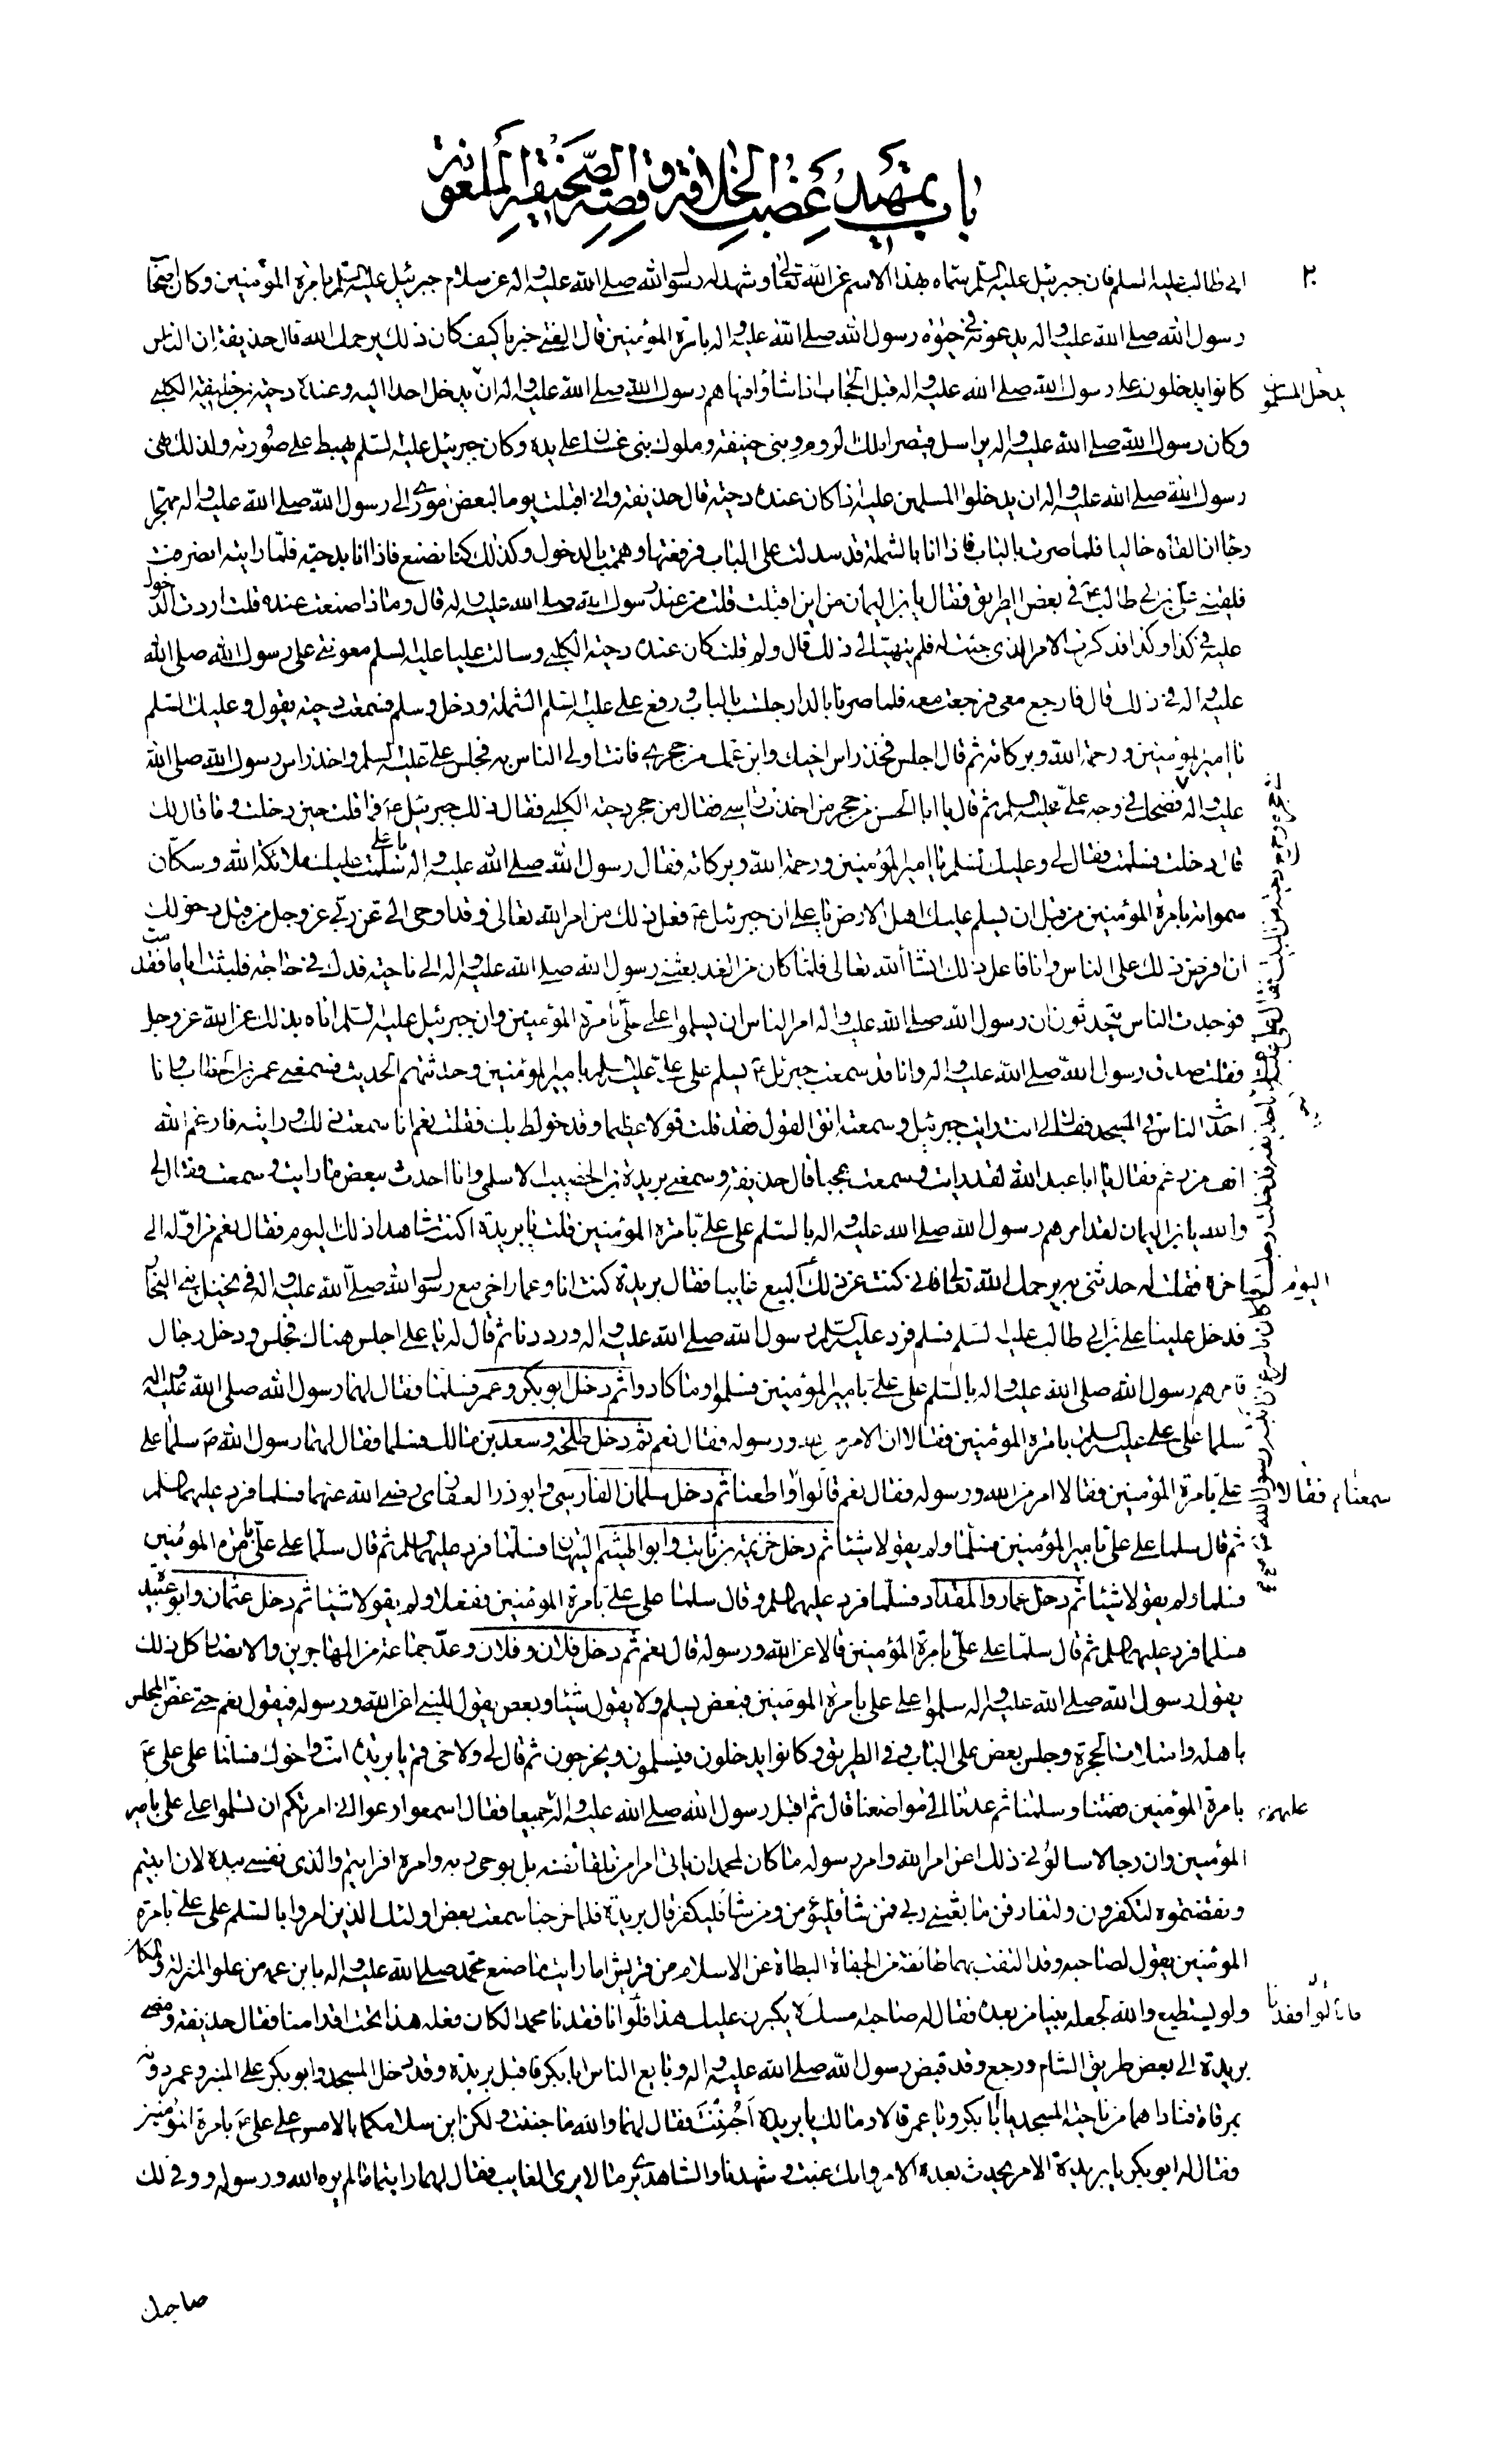 باب تمهيد غصب الخلافة و قصة الصحيفة الملعونة
٢
ابى طالب عليه السلم فان جبرئيل عليه السلم سماه بهذا الاسم عن الله تعالى و شهد له رسول الله صلى الله عليه و اله عن سلام جبرئيل عليه السلم بامرة المؤمنين و كان اصحاب
رسول الله صلى الله عليه و اله يدعونه فى حيوة رسول الله صلى الله عليه و اله بامرة المؤمنين قال الفتى خبرنا كيف كان ذلك يرحمك الله قال حذيفة ان الناس
كانوا يدخلون على رسول الله صلى الله عليه و اله قبل الحجاب اذا شاؤا فنهاهم رسول الله صلى الله عليه و اله ان يدخل احد اليه و عنده دحية بن خليفة الكلبى
يدخل المسلمون
و كان رسول الله صلى الله عليه و اله يراسل قيصرا ملك الروم و بنى حنيفة و ملوك بنى غسان على يده و كان جبرئيل عليه السلم يهبط على صورته و لذلك نهى
رسول الله صلى الله عليه و اله ان يدخلوا المسلمين عليه اذا كان عنده دحية قال حذيفة و انى اقبلت يوما لبعض امورى الى رسول الله صلى الله عليه و اله مهجرا
رجاء ان القاه خاليا فلما صرت بالباب فاذا انا بالشملة قد سدلت على الباب فرفعتها و هممت بالدخول و كذلك كنا نصنع فاذا انا بدحية فلما رايته انصرفت
فلقينى على بن ابى طالب ع فى بعض الطريق فقال يا بن اليمان من اين اقبلت قلت من عند رسول الله صلى الله عليه و اله قال و ماذا صنعت عنده قلت اردت الدخول
عليه فى كذا و كذا فذكرت الامر الذى جئت له فلم يتهيا لى ذلك قال و لم قلت كان عنده دحية الكلبى و سالت عليا عليه السلم معونتى على رسول الله صلى الله
عليه و اله فى ذلك قال فارجع معى فرجعت معه فلما صرنا بالدار جلست بالباب و رفع على عليه السلم الشملة و دخل و سلم فسمعت دحية يقول و عليك السلم
يا امير المؤمنين و رحمة الله و بركاته ثم قال اجلس فخذ راس اخيك و ابن عمك من حجرى فانت اولى الناس به فجلس على عليه السلم و اخذ راس رسول الله صلى الله
عليه و اله فضحك فى وجه على عليه السلم ثم قال يا ابا الحسن من حجر من اخذت راسى فقال من حجر دحية الكلبى فقال ذلك جبرئيل ع فما قلت حين دخلت و ما قال لك
قال دخلت فسلمت فقال لى و عليك السلم يا امير المؤمنين و رحمة الله و بركاته فقال رسول الله صلى الله عليه و اله يا على سلمت عليك ملائكة الله و سكان
سمواته بامرة المؤمنين من قبل ان يسلم عليك اهل الارض يا على ان جبرئيل ع فعل ذلك من امر الله تعالى و قد اوحى الى عن ربى عز و جل من قبل دخولك
ان افرض ذلك على الناس و انا فاعل ذلك انشاء الله تعالى فلما كان من الغد بعثنى رسول الله صلى الله عليه و اله الى ناحية فدك فى حاجة فلبثت اياما فقدمت
فوجدت الناس يتحدثون ان رسول الله صلى الله عليه و اله امر الناس ان يسلموا على على بامرة المؤمنين و ان جبرئيل عليه السلم اتاه بذلك عن الله عز و جل
فقلت صدق رسول الله صلى الله عليه و اله و انا قد سمعت جبرئيل ع يسلم على على عليه السلم بامير المؤمنين و حدثتهم الحديث فسمعنى عمر بن الخطاب و انا
احدث الناس فى المسجد فقال لى انت رايت جبرئيل و سمعته اتق القول فقد قلت قولا عظيما و قد خولط بك فقلت نعم انا سمعت ذلك و رايته فارغم الله
انف من رغم فقال يا ابا عبد الله لقد رايت و سمعت عجبا قال حذيفة و سمعنى بريدة بن الحصيب الاسلمى و انا احدث ببعض ما رايت و سمعت فقال لى
و الله يا بن اليمان لقد امرهم رسول الله صلى الله عليه و اله بالسلم على على بامرة المؤمنين قلت يا بريدة اكنت شاهدا ذلك اليوم فقال نعم من اوله الى
اخره فقلت له حدثنى به يرحمك الله تعالى فانى كنت عن ذلك اليوم غايبا فقال بريدة كنت انا و عمار اخى مع رسول الله صلى الله عليه و اله فى نخيل بنى النجار
اليوم
فدخل علينا على بن ابى طالب عليه السلم فسلم فرد عليه السلم رسول الله صلى الله عليه و اله و رددنا ثم قال له يا على اجلس هناك فجلس و دخل رجال
فامرهم رسول الله صلى الله عليه و اله بالسلم على على بامير المؤمنين فسلموا و ما كادوا ثم دخل ابو بكر و عمر فسلما فقال لهما رسول الله صلى الله عليه و اله
سلما على على عليه السلم بامرة المؤمنين فقالا ان الامر من الله و رسوله فقال نعم ثم دخل طلحة و سعد بن مالك فسلما فقال لهما رسول الله ص سلما على
على بامرة المؤمنين فقالا امر من الله و رسوله فقال نعم قالوا و اطعنا ثم دخل سلمان الفارسى و ابو ذر الغفارى رضى الله عنهما فسلما فرد عليهما السلم
سمعنا فقالا
ثم قال سلما على على بامير المؤمنين فسلما و لم يقولا شيئا ثم دخل خزيمة بن ثابت و ابو الهيثم التيهان فسلما فرد عليهما السلم ثم قال سلما على على بامرة المؤمنين
فسلما و لم يقولا شيئا ثم دخل عمار و المقداد فسلما فرد عليهما السلم و قال سلما على على بامرة المؤمنين ففعلا و لم يقولا شيئا ثم دخل عثمان و ابو عبيدة
فسلما فرد عليهما السلم ثم قال سلما على على بامرة المؤمنين قالا عن الله و رسوله قال نعم ثم دخل فلان و فلان و عد جماعة من المهاجرين و الانصار كل ذلك
يقول رسول الله صلى الله عليه و اله سلموا على على بامرة المؤمنين فبعض يسلم و لا يقول شيئا و بعض يقول للنبى اعن الله و رسوله فيقول نعم حتى غص المجلس
باهله و امتلات الحجرة و جلس بعض على الباب و فى الطريق و كانوا يدخلون فيسلمون و يخرجون ثم قال لى و لاخى قم يا بريدة انت و اخوك فسلما على على ع
بامرة المؤمنين فقمنا و سلمنا ثم عدنا الى مواضعنا قال ثم اقبل رسول الله صلى الله عليه و اله جميعا فقال اسمعوا و عوا انى امرتكم ان تسلموا على على بامرة
عليهم
المؤمنين و ان رجالا سالونى ذلك اعن امر الله و امر رسوله ما كان لمحمد ان ياتى امرا من تلقاء نفسه بل بوحى ربه و امره افرايتم و الذى نفسى بيده لان ابيتم
و نقضتموه لتكفرون و لتفارقن ما بعثنى ربى فمن شاء فليؤمن و من شاء فليكفر قال بريدة فلما خرجنا سمعت بعض اولئك الذين امروا بالسلم على على بامرة
المؤمنين يقول لصاحبه و قد التفت بهما طائفة من الجفاة البطاة عن الاسلام من قريش اما رايت ما صنع محمد صلى الله عليه و اله بابن عمه من علو المنزلة و المكان
و لو يستطيع و الله لجعله نبيا من بعده فقال له صاحبه امسك لا يكبرن عليك هذا فلو انا فقدنا محمدا لكان فعله هذا تحت اقدامنا فقال حذيفة و مضى
بريدة الى بعض طريق الشام و رجع و قد قبض رسول الله صلى الله عليه و اله و بايع الناس ابا بكر فاقبل بريدة و قد دخل المسجد و ابو بكر على المنبر و عمر دونه
بمرقاة فناداهما من ناحية المسجد يا ابا بكر و يا عمر قالا و ما لك يا بريدة اجننت فقال لهما و الله ما جننت و لكن اين سلامكما بالامس على على ع بامرة المؤمنين
فقال له ابو بكر يا بريدة الامر يحدث بعده الامر و انك غبت و شهدنا و الشاهد يرى ما لا يرى الغايب فقال لهما رايتما ما لم يره الله و رسوله و وفى لك
صاحبك